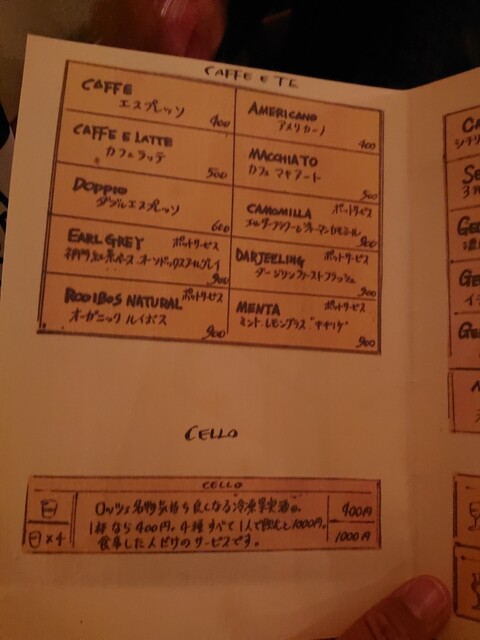 CAFFE E TE
CAFFE
エスプレッソ
400
AMERICANO
アメリカーノ
400
CAFFE E LATTE
カフェラッテ
500
MACCHIATO
カフェマキアート
500
DOPPIO
ダブルエスプレッソ
600
CAMOMILLA ポットサービス
900
EARL GREY ポットサービス
900
DARJEELING ポットサービス
ダージリンファーストフラッシュ
900
ROOIBOS NATURAL ポットサービス
オーガニック ルイボス
900
MENTA ポットサービス
ミント レモングラス
900
CELLO
CELLO
名物気持ち良くなる冷凍果実酒。
400円
1杯なら400円。4種すべて1人で飲んと1000円。
×4
1000円
食事した人だけのサービスです。